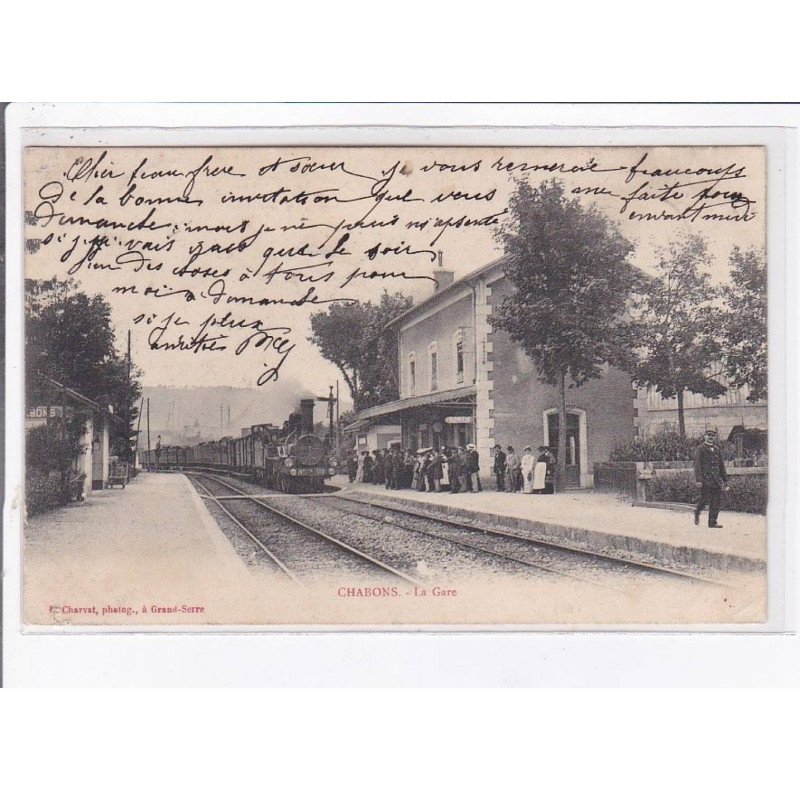 Cher beau frère et sœur je vous remercie beaucoups
de la bonne invitation que vous me faite pour
dimanche mais je ne peut m'absenté
si j'y vais pas que le soir
bien des choses à tous pour
moi a dimanche
si je peux
BONS
CHABONS. - La Gare
E. Charvat, photog., à Grand-Serre